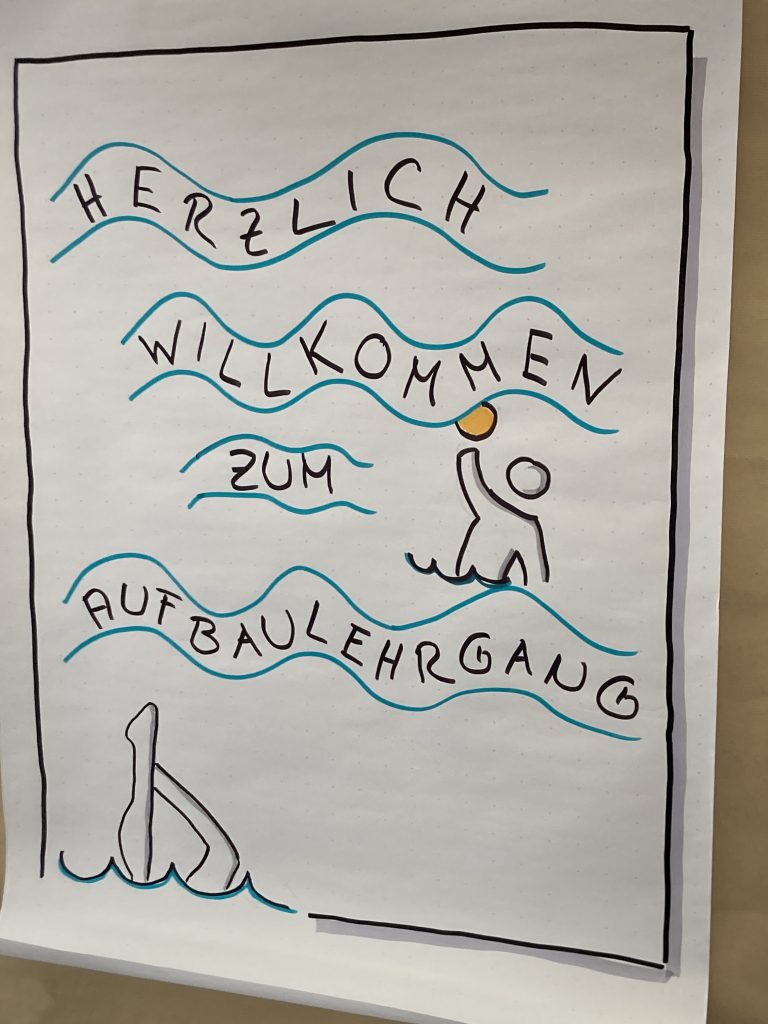 HERZLICH
WILLKOMMEN
ZUM
AUFBAULEHRGANG